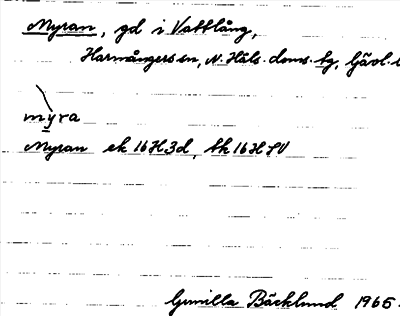 Myran, gd i Vattlång,
Harmångers sn, N. Häls. doms. tg, Gävl.
myra
Myran ek 16H3d, tk 16H SV
Gunilla Bäcklund 1965.